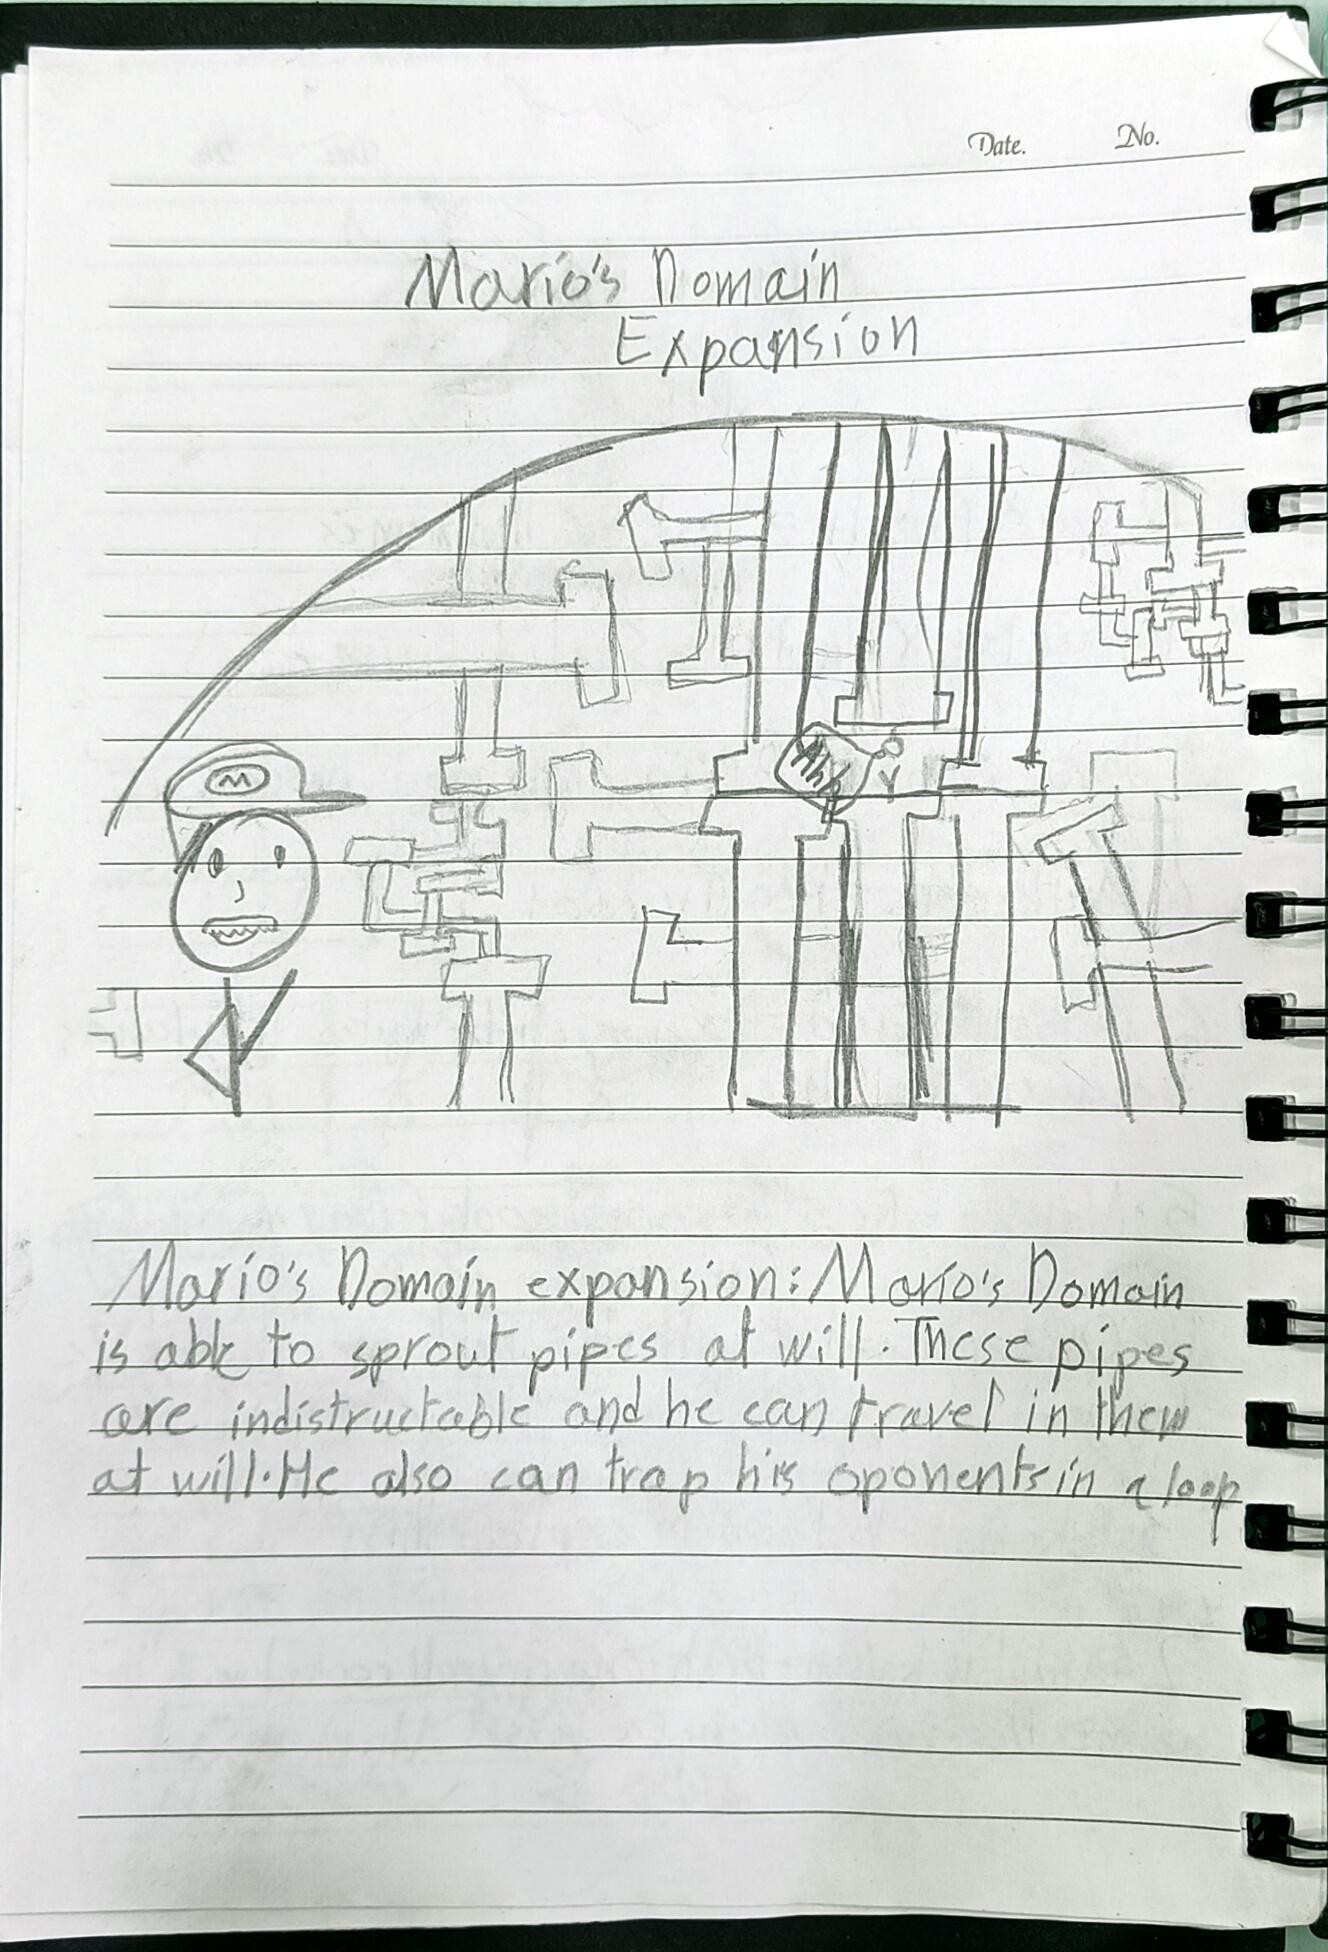 Date. No.
Mario's Domain
Expansion
M
Ahh
Mario's Domain expansion: Mario's Domain
is able to sprout pipes at will. These pipes
are indistructable and he can travel in them
at will. He also can trap his oponents in a loop